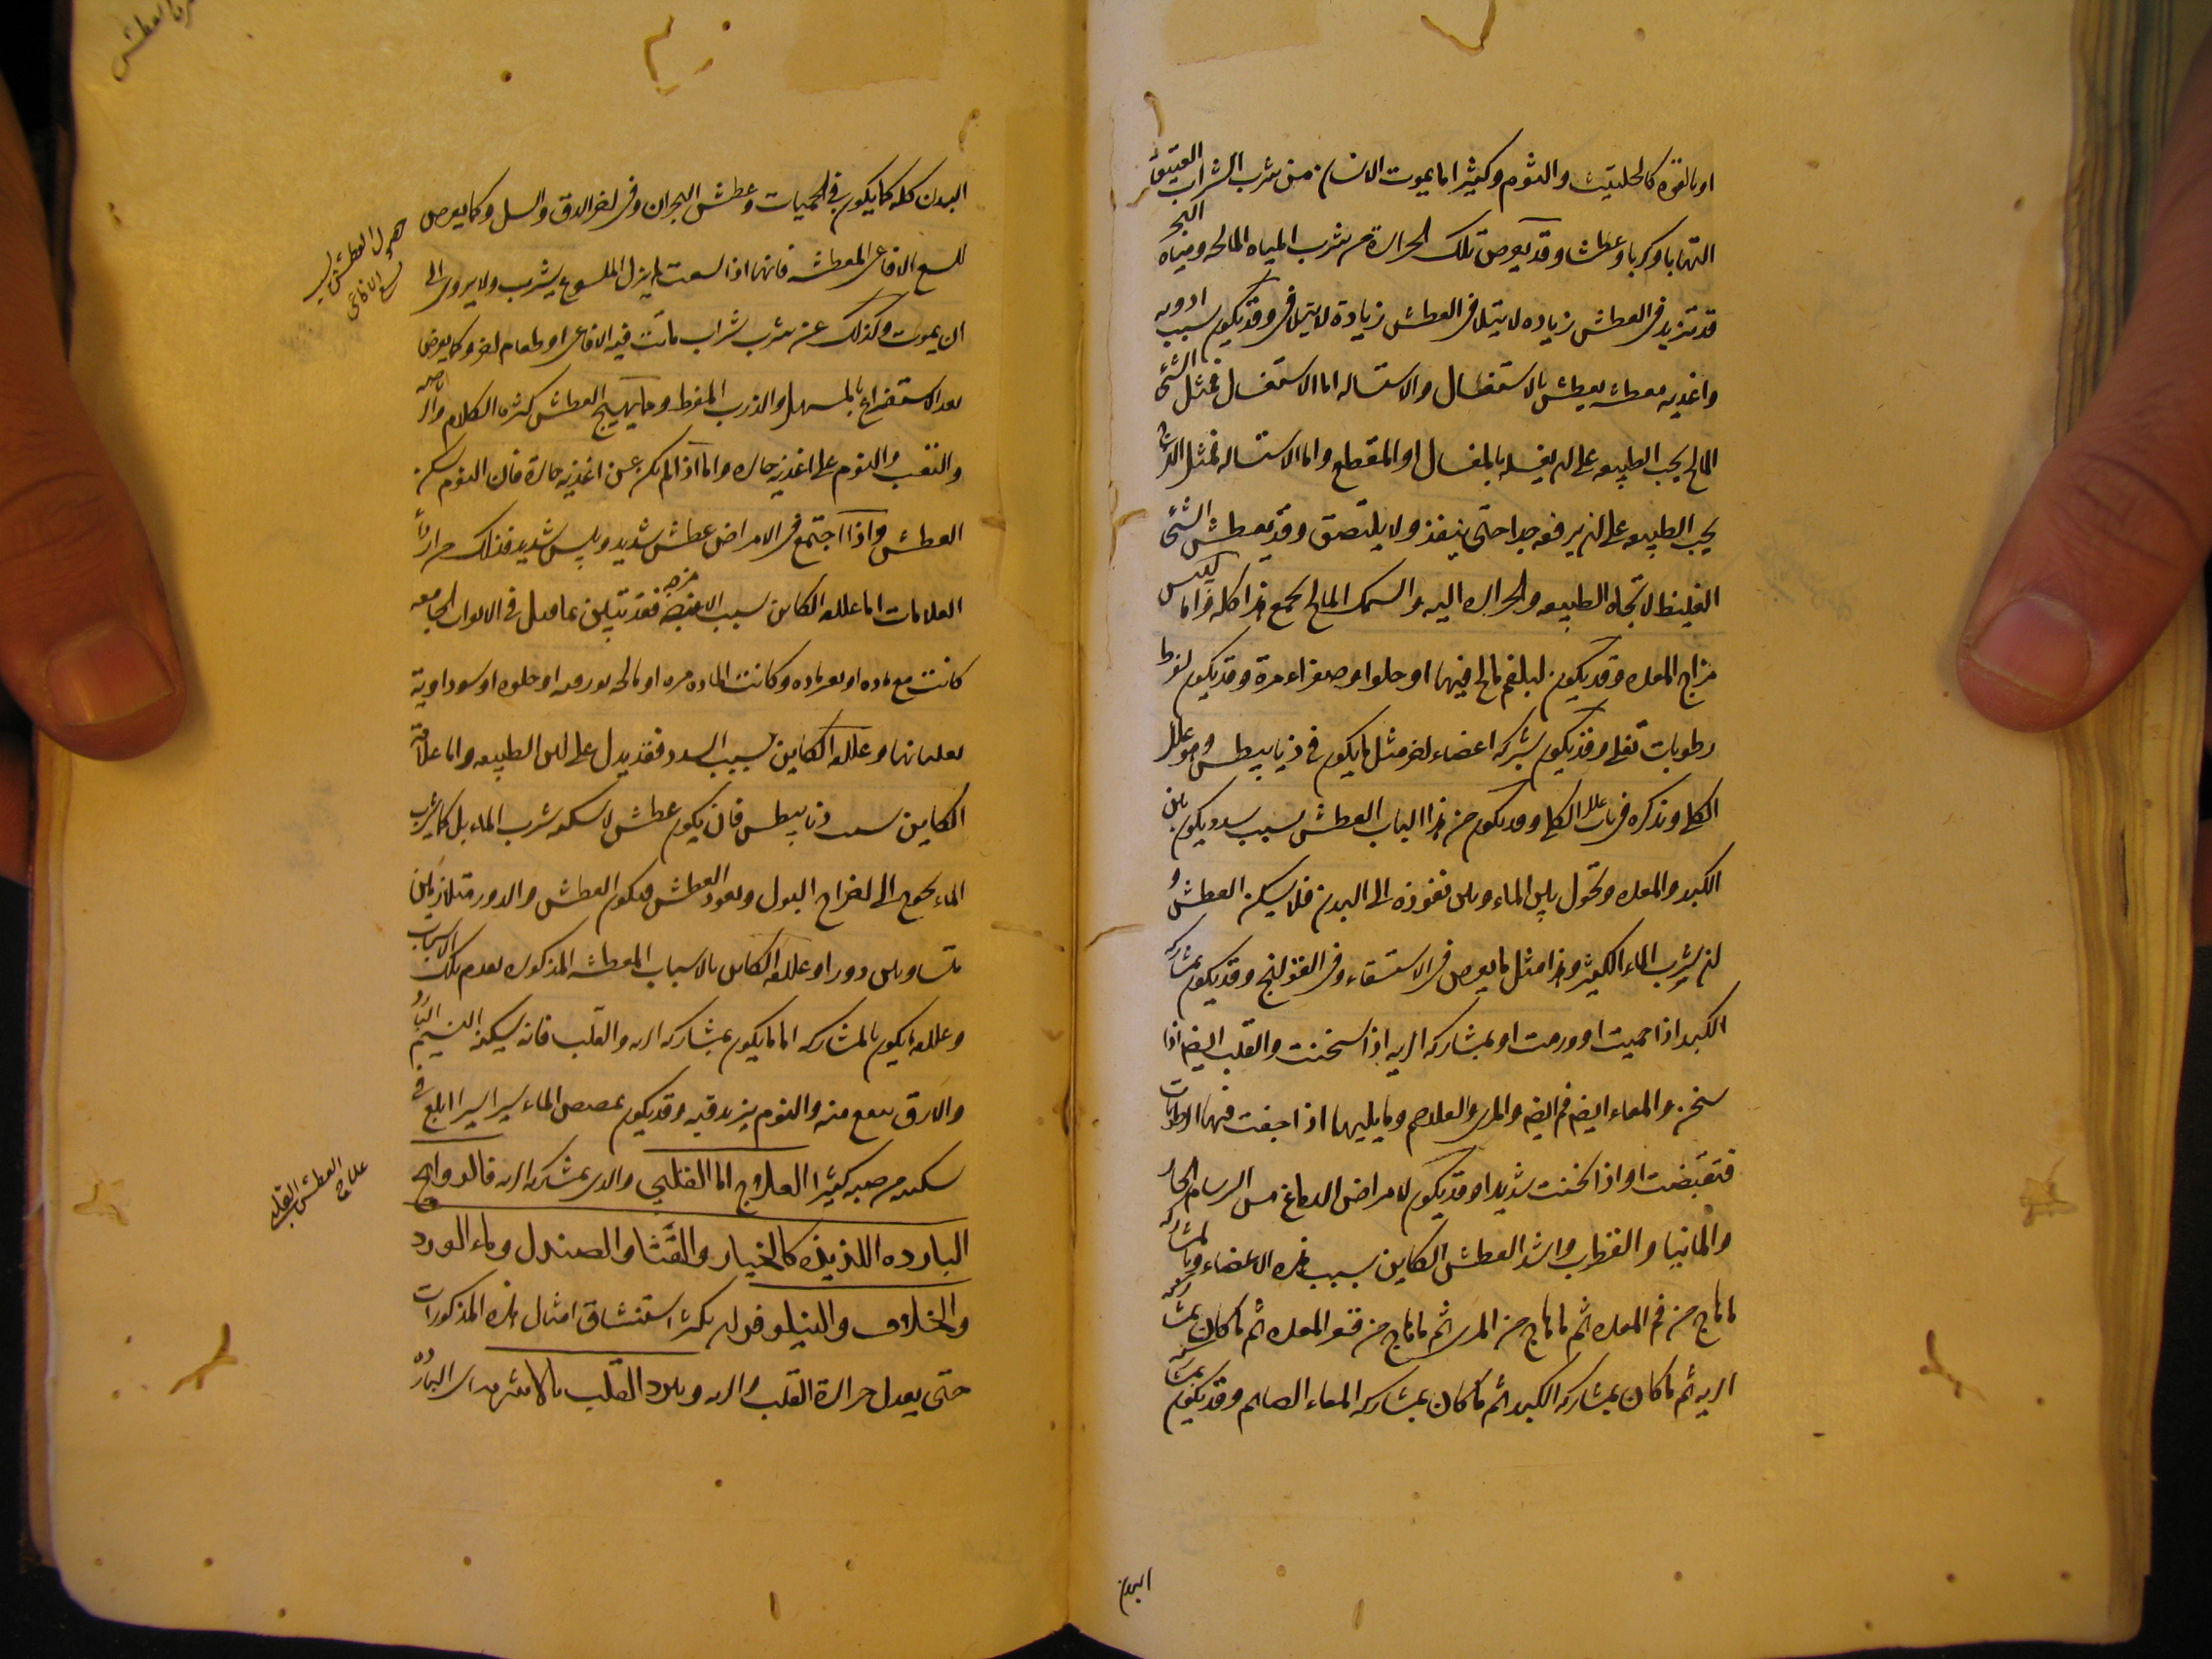 او بالقوة كالحلتيت والثوم وكثيرا ما يموت الانسان من شرب الشراب العتيق
التهابا وكربا وعطشا وقد يعرض تلك الحرارة من شرب المياه المالحة ومياه البحر
قد تزيد في العطش زياده لا يتلافى العطش زيادة لا يتلافى وقد يكون بسبب ادويه
واغذيه معطشه يعطش بالاستغسال والاستساله اما الاستغسال فمثل الشئ
المالح يحب الطبيعه على ان يغسله بالمغسال او المقطع واما الاستساله فمثل
يحب الطبيعه على ان يرفعه جدا حتى ينفذ ولا يلتصق وقد يعطش الشئ
الغليظ لاتجاه الطبيعه والحراره اليه والسمك المالح يجمع هذا كله واما ليبس
مزاج المعده وقد يكون لبلغم مالح فيها او حلو او صفراء مرة وقد يكون لفرط
رطوبات تغلى وقد يكون بشركه اعضاء اخر مثل ما يكون في ذيابيطس وهو علل
الكلى ونذكره في باب علل الكلى وقد يكون من هذا الباب العطش بسبب سدد يكون بين
الكبد والمعده وتحول بين الماء وبين نفوذه الى البدن فلا يسكن العطش و
ان يشرب الماء الكثير وهذا مثل ما يعرض في الاستسقاء وفي القولنج وقد يكون بمشاركه
الكبد اذا حميت او ورمت او بمشاركه الريه اذا سخنت والقلب ايضا اذا
سخن والمعاء ايضا فم ايضا والمرى والغلاصم وما يليها اذا جفت فيها الرطوبات
فتقبضت او اذا سخنت شديدا وقد يكون لامراض الدماغ من السرسام الحار
والمانيا والقطرب واشد العطش الكاين بسبب هذه الاعضاء وبالمشاركه
ما هاج من فم المعده ثم ما هاج من المرى ثم ما هاج من قعر المعده ثم ما كان بمشاركه
الريه ثم ما كان بمشاركه الكبد ثم ما كان بمشاركه المعاء الصائم وقد يكون بمشاركه
البدن
البدن كله كما يكون في الحميات وعطش البحران وفي اخر الدق والسل وكما يعرض
للسع الافاعى المعطشه فانها اذا لسعت لم يزل الملسوع يشرب ولا يروى الى
ان يموت وكذلك عن شرب شراب ماتت فيه الافاعى او طعام اخر وكما يعرض
بعد الاستفراغ بالمسهل والذرب المفرط وما يهيج العطش كثره الكلام والرياضه
والتعب والنوم على اغذيه حاره واما اذا لم يكن عن اغذيه حارة فان النوم يسكن
العطش واذا اجتمع في الامراض عطش شديد ويبس شديد فذلك
العلامات اما علامه الكاين بسبب الامزجه فقد تبين مما قيل في الابواب الجامعه
كانت مع ماده او بغير ماده وكانت الماده مره او مالحه بورقيه او حلوه او سوداوية
بعلاماتها وعلامه الكاين بسبب السدد فقد يدل على لين الطبيعه واما علامه
الكاين بسبب ذيابيطس فان يكون عطش لا يسكنه شرب الماء بل كما يشرب
الماء يحوج الى اخراج البول ويعود العطش فيكون العطش والدور متلازمين
متساويين دورا وعلامه الكاين بالاسباب المعطشه المذكوره تقدم تلك الاسباب
وعلامه ما يكون بالمشاركه اما ما يكون بمشاركه الريه والقلب فانه يسكنه النسيم البارد
والارق ينفع منه والنوم يزيد فيه وقد يكون تمصص الماء يسيرا يسيرا ابلغ في
تسكينه من صبه كثيرا العلاج اما القلبى والذى بمشاركه الريه فالروايح
البارده اللذيذه كالخيار والقثا والصندل وماء الورد
والخلاف والنيلوفر ان يكثر استنشاق امثال هذه المذكورات
حتى يعدل حرارة القلب والريه ويبرد القلب بالاشربه البارده
علاج العطش القلبى